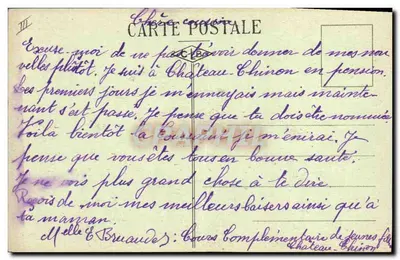 III
Chère cousine
CARTE POSTALE
Excuse-moi de ne pas t'avoir donner de mes nou
velles plutôt. Je suis à Château-Chinon en pension.
Les premiers jours je m'ennuyais mais mainte-
nant s'est passé. Je pense que tu dois être nommée
Voilà bientôt la Toussaint je m'ennuie. Je
pense que vous êtes tous en bonne santé.
Je ne vois plus grand chose à te dire
Reçois de moi mes meilleurs baisers ainsi qu'à
ta maman
Melle E Bruandet: Cours Complémentaire de Jeunes filles
Château-Chinon